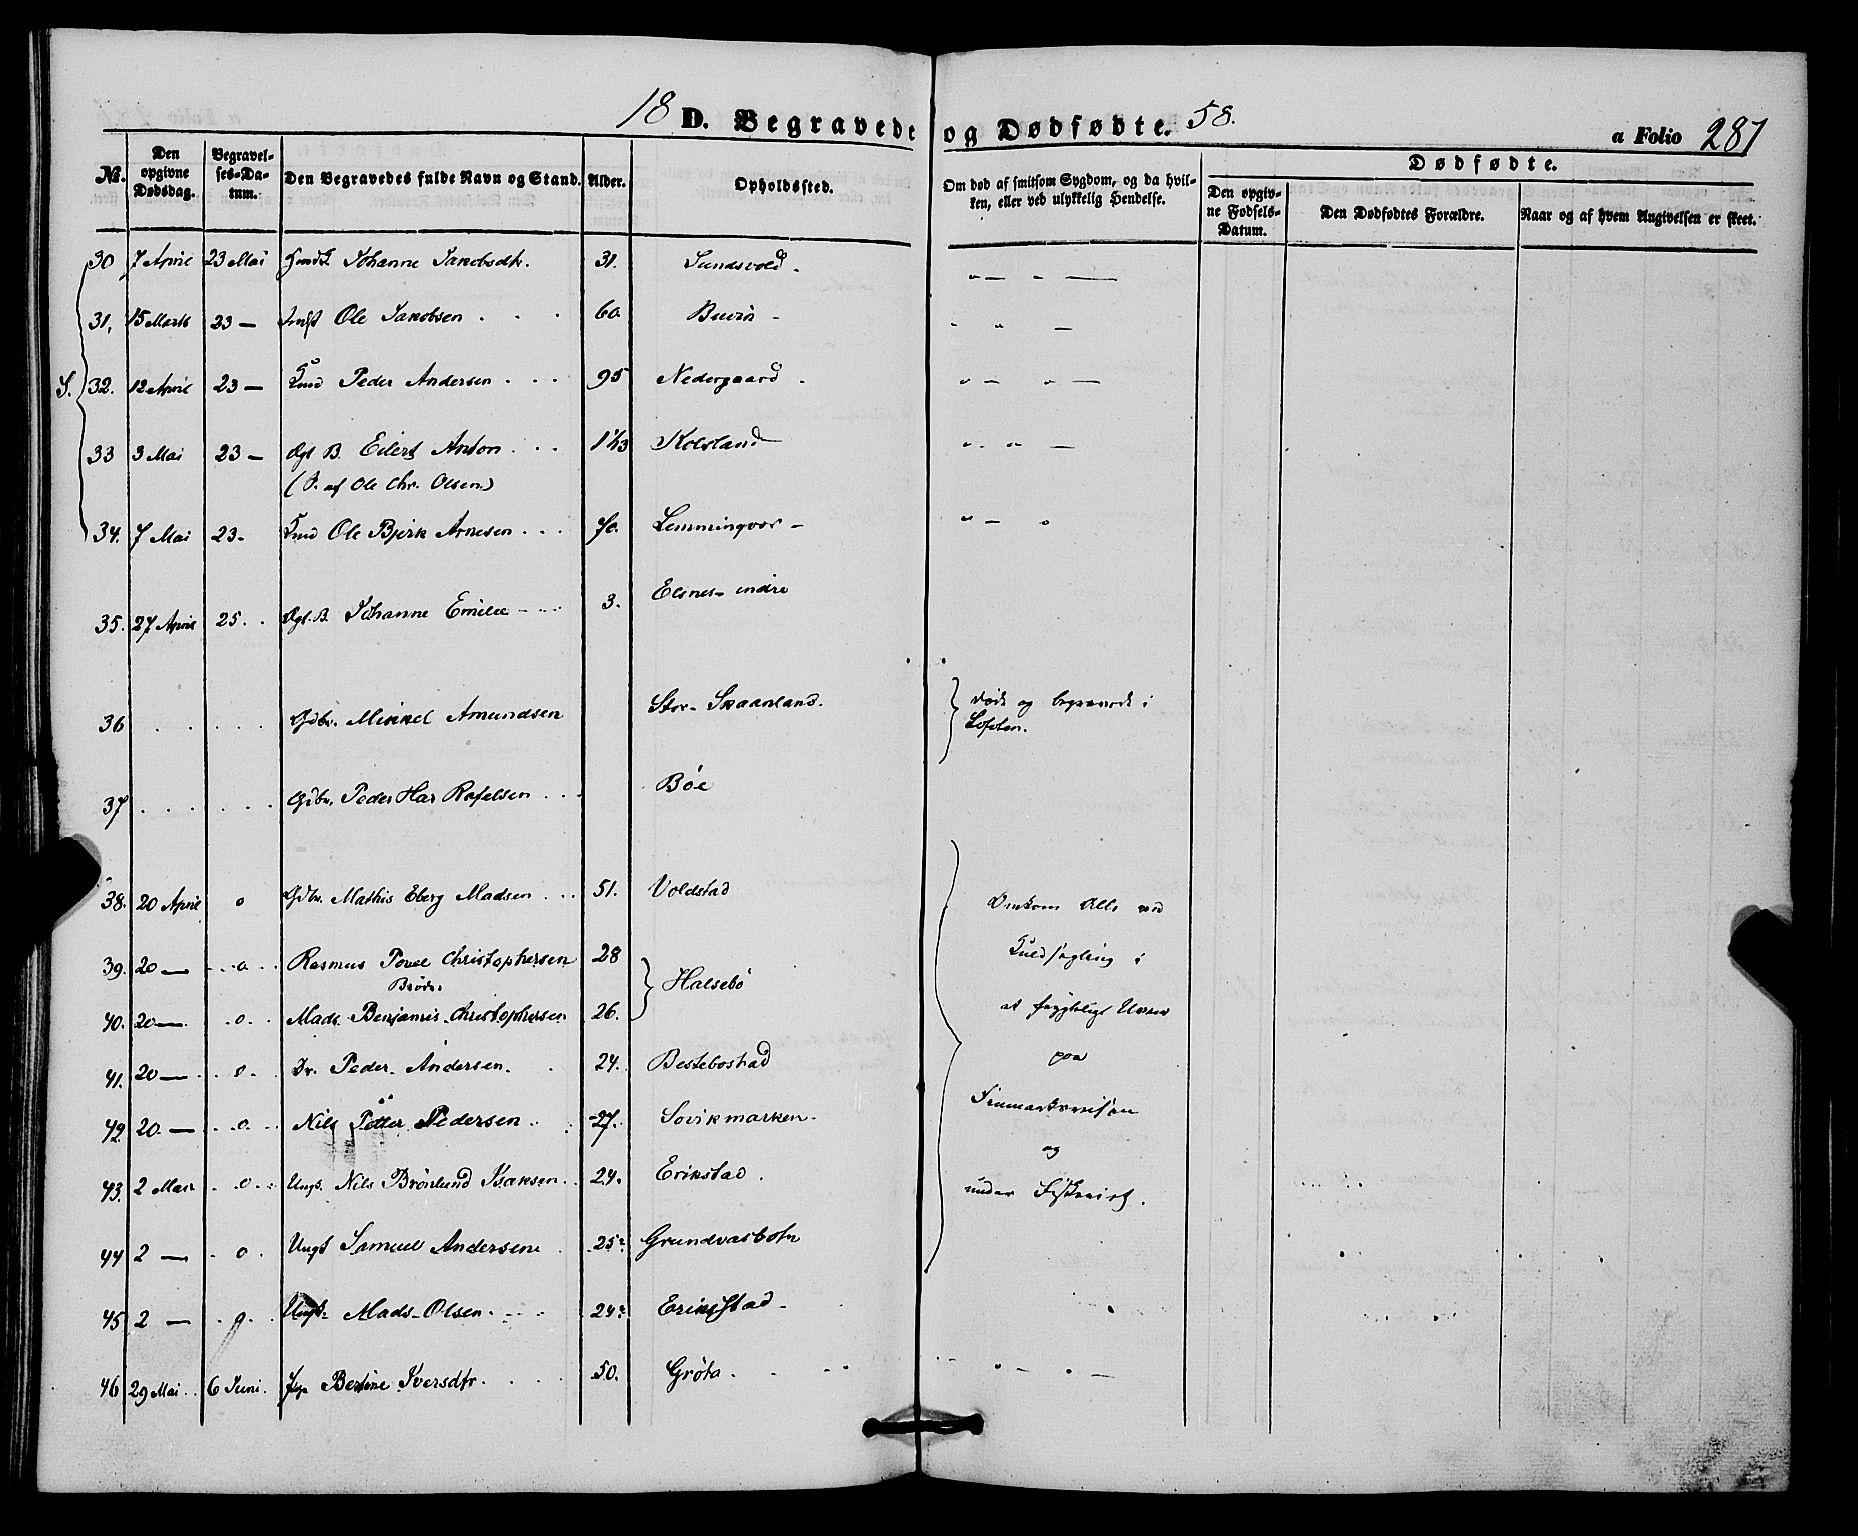 18 D. Begravede og Dødfødte. 58. a Folio 281
No. Den opgivne Dødsdag. Begravelses-Datum. Den Begravedes fulde Navn og Stand. Alder. Opholdssted. Om død af smitsom Sygdom, og da hvilken, eller ved ulykkelig Hendelse. Dødfødte.
Den opgivne Fødsels-Datum. Den Dødfødtes Forældre. Naar og af hvem Angivelsen er skeet.
30 7 April 23 Mai Johanne Jakobsdtr. 31. Sundsvold - " — " —
31, 15 Marts 23 — Ole Jakobsen . . . 60 - " " —
32. 12 April 23 — Peder Andersen . . . 95 Nedergaard . " — " —
S.
33 3 Mai 23 — Eilert Anton . . . Kolsland " " —
( af Ole Chr. Olsen)
34. 7 Mai 23- Ole Bjerk Arnesen . . . 70. Lemmingvær - " — "
35. 27 April 25. . B. Johanne Emilie - 3. Elsnes- indre
36 Gdbr. Mikkel Amundsen Stor- Skaanland. døde og begravede i
Lofoten.
37 Gdbr. Peder Har Rafelsen . . . Bøe
38. 20 April o Gdbr. Mathis Eberg Madsen . . . 51. Voldstad Omkom Alle ved
39. 20 — o Rasmus Povel Christophersen 28 Halsebø i
Brødre
40. 20 — o Mads Benjamin Christophersen 26. at frygteligt Uveir
41. 20 — o Dr. Peder Andersen. 24. Bestebostad paa
42 20. — o. Nils Petter Pedersen . 27. Sørvikmarken - Finmarksreisen
og
43. 2 Mai o Ungk. Nils Brönlund Isaksen . . 24. Erikstad . under Fiskeriet.
44 2 — o Ungk Samuel Andersen . 25 Grundvasbotn
45 2 — o Ungk. Mads Olsen . 24 Erikstad -
46 29 Mai 6 Juni. Bertine Iversdtr . . . . 50. Grøta . " — " —